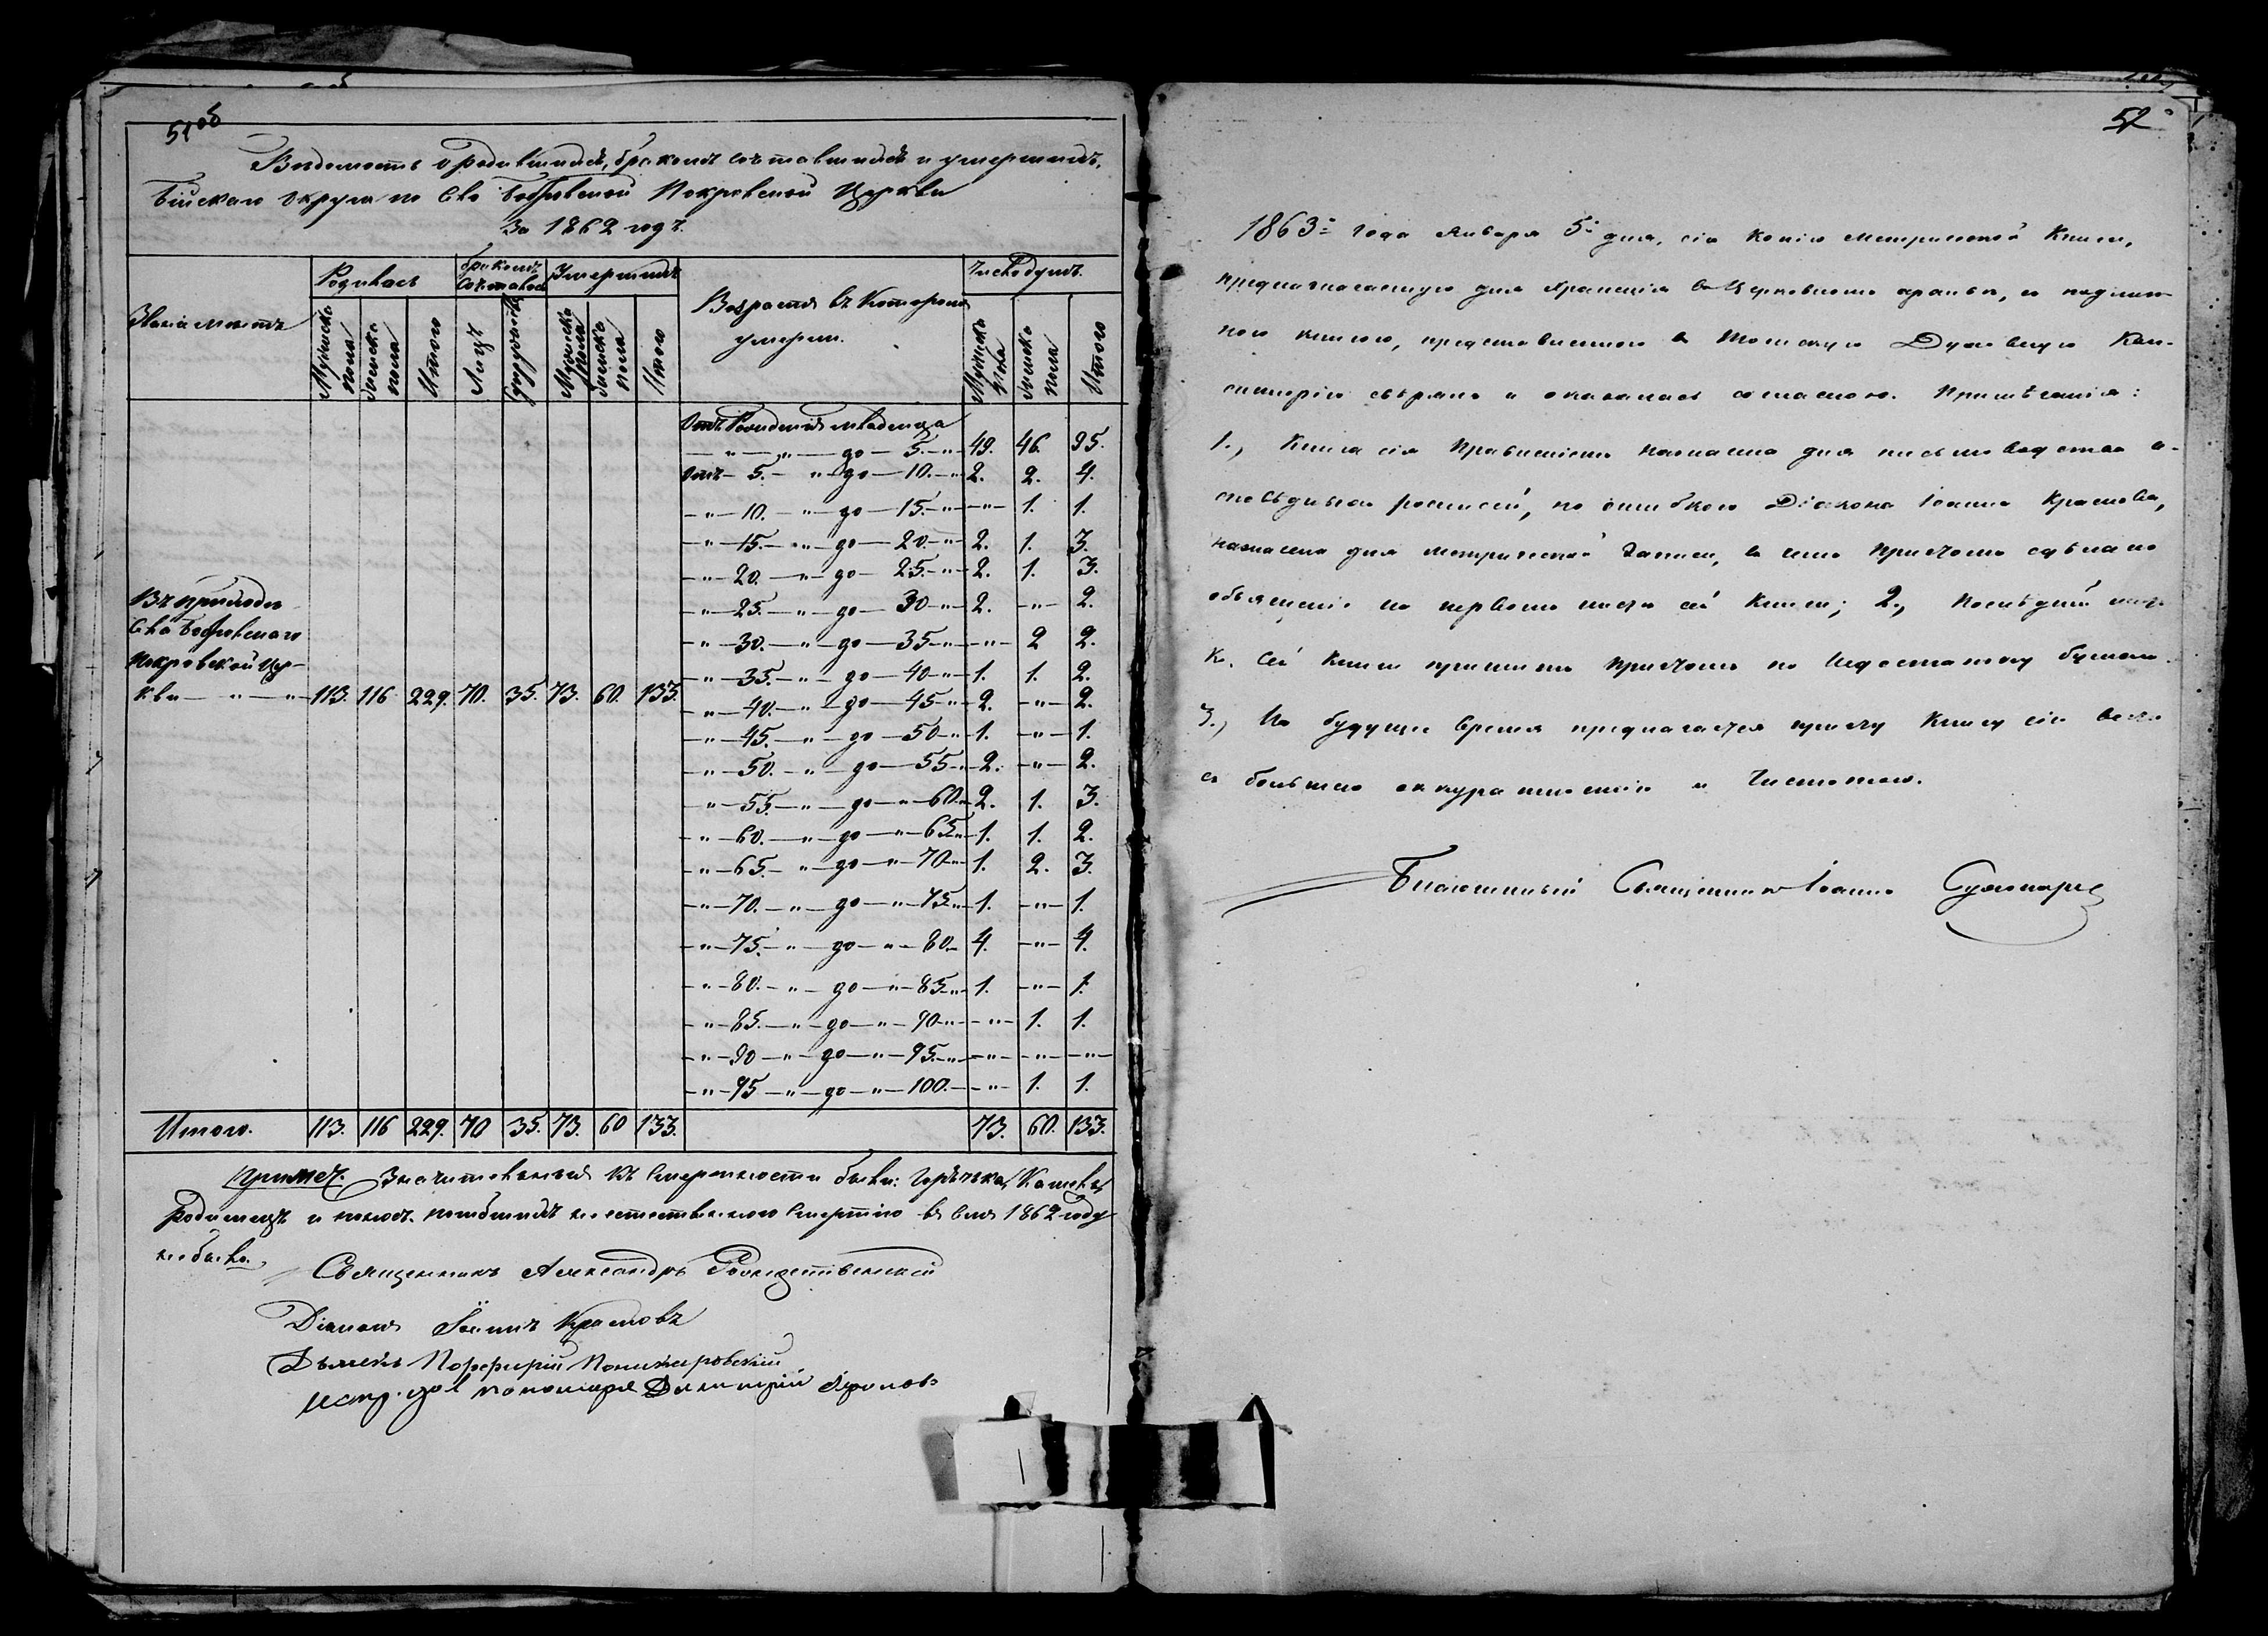 51об
Ведомость о родившихся, бракомъ сочетавшихся и умершихъ,
Бійскаго округа по Села Бобровской Покровской Церкви
За 1862 годъ.
Званіе мѣстъ
Родилось
бракомъ сочеталось
Умершихъ
Возрастъ въ которомъ умерли.
Число душъ.
Мужеска пола
Женска пола
Итого
Лицъ
Супружествъ
Мужеска пола
Женска пола
Итого
Мужеска пола
Женска пола
Итого
Отъ Рожденія младенца
— „ — „ — до — 5. — „ — 49. 46. 95.
Отъ — 5. — „ — до — 10. — „ — 2. 2. 4.
— „ — 10. — „ — до — 15. — „ — — „ — 1. 1.
— „ — 15. — „ — до — 20. — „ — 2. 1. 3.
— „ — 20. — „ — до — 25. — „ — 2. 1. 3.
— „ — 25. — „ — до — 30 — „ — 2. — „ — 2.
— „ — 30. — „ — до — 35 — „ — — „ — 2 2.
— „ — 35. — „ — до — 40 — „ — 1. 1. 2.
— „ — 40. — „ — до — 45 — „ — 2. — „ — 2.
— „ — 45. — „ — до — 50 — „ — 1. — „ — 1.
— „ — 50. — „ — до — 55 — „ — 2. — „ — 2.
— „ — 55. — „ — до — „ — 60. — „ — 2. 1. 3.
— „ — 60. — „ — до — „ — 65. — „ — 1. 1. 2.
— „ — 65. — „ — до — „ — 70 — „ — 1. 2. 3.
— „ — 70. — „ — до — „ — 75. — „ — 1. — „ — 1.
— „ — 75. — „ — до — „ — 80. — 4. — „ — 4.
— „ — 80. — „ — до — „ — 85. — „ — 1. — „ — 1.
— „ — 85. — „ — до — „ — 90 — „ — — „ — 1. 1.
— „ — 90 — „ — до — „ — 95. — „ — — „ — — „ — — „ —
— „ — 95 — „ — до — „ — 100. — — „ — 1. 1.
Въ приходѣ
Села Бобровскаго
Покровской Цер-
кви — „ — „ — 113. 116 229. 70. 35. 73. 60. 133.
Итого. 113. 116 229. 70 35. 73. 60 133. 73. 60. 133.
Примеч. Значительныя къ смертности были: Горячка, Кашель,
Родимецъ и понос. погибшихъ неестественною смертію въ семъ 1862 году
не было.
Священникъ Александръ Рождественскій
Діаконъ Іоаннъ Красновъ
Дьячекъ Порфирій
Испр. дол. пономаря Димитрій
52
1863го года Января 5го дня, сія копія метрической книги,
предназначенную для храненія въ Церковномъ архивѣ, съ подлин-
ною книгою, представленною въ Томскую Духовную Кон-
систорію свѣряна и оказалась согласною. Примѣчанія:
1., Книга сія Правленіемъ назначена для письмоводства и-
сповѣдныхъ росписей, но ошибкою Діакона Іоанна Краснова,
написана для метрической записи, въ чемъ Причтомъ сдѣлано
объясненіе на первомъ листѣ сей книги; 2., Послѣдній лист
къ сей книги пришитъ Причтомъ по недостатку бумаги.
3., На будущее время предлагается причту книгу сію вести
съ большею аккуратностію и чистотою.
Благочинный Священникъ Іоаннъ